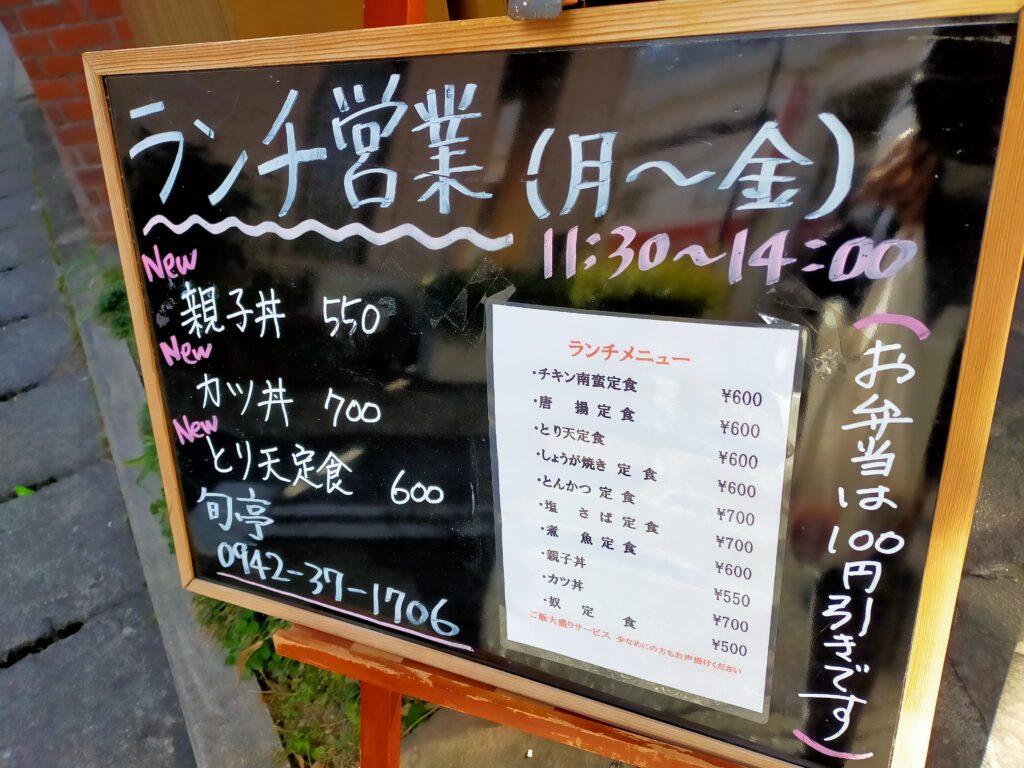 ランチ営業（月～金）
11:30～14:00
New
親子丼 550
New
カツ丼 700
New
とり天定食 600
旬亭
0942-37-1706
ランチメニュー
・チキン南蛮定食 ¥600
・唐 揚 定 食 ¥600
・とり天定食 ¥600
・しょうが焼き 定 食 ¥600
・とんかつ 定 食 ¥700
・塩 さ ば 定 食 ¥700
・煮 魚 定 食 ¥600
・親子丼 ¥550
・カツ丼 ¥700
・奴 定 食 ¥500
ご飯大盛りサービス 少なめにの方もお声掛けください
（お弁当は100円引きです）